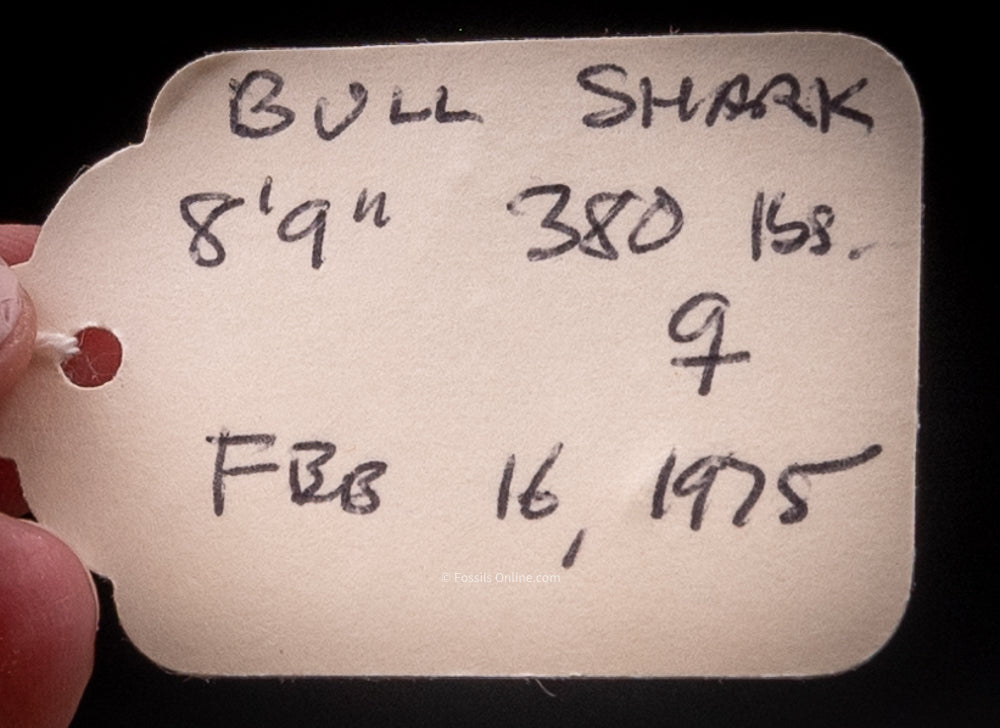 BULL SHARK
8'9" 380 lbs.
♀
FEB 16, 1975
© Fossils Online.com